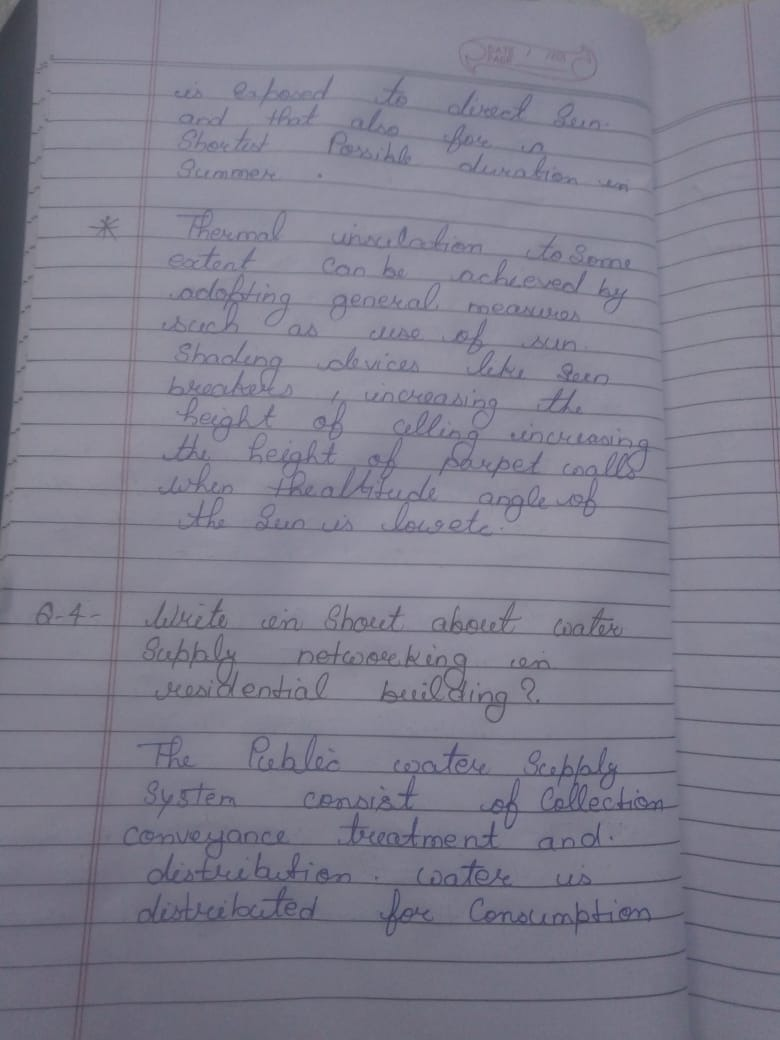 DATE / /20
PAGE
is exposed to direct Sun.
and that also for in
Shortest Possible duration in
Summer .
* Thermal insulation to Some
extent can be achieved by
adopting general measures
such as use of sun
Shading devices like Sun
breakers , increasing the
height of celling increasing
the height of parpet walls
when the altitude angle of
the Sun is lowete.
Q-4- Write in Short about water
Supply networking in
residential building ?
The Public water Supply
System consist of Collection
conveyance treatment and.
distribution . Water is
distributed for Consumption